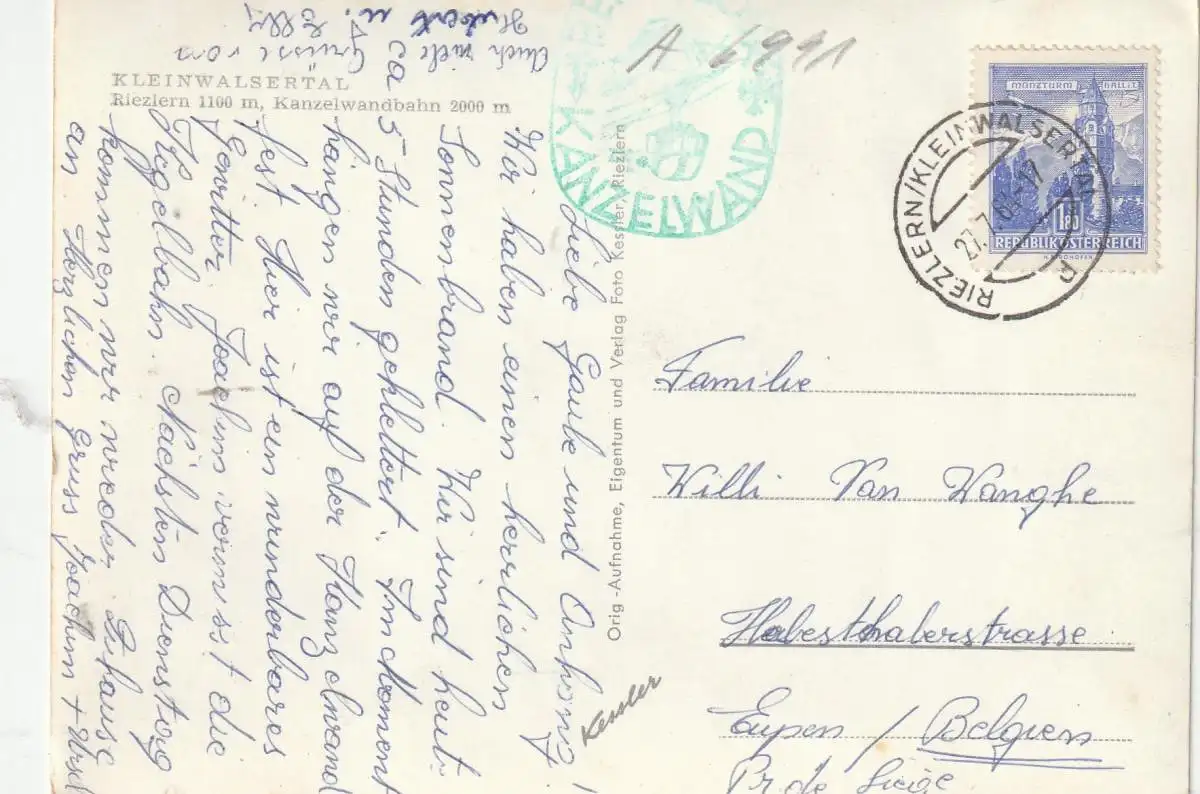 KLEINWALSERTAL
Riezlern 1100 m, Kanzelwandbahn 2000 m
A 6991
KANZELWAND
MÜNZTURM HALL I.T.
1.80
REPUBLIK ÖSTERREICH
RIEZLERN/KLEINWALSERTAL
27.7.6
Orig.-Aufnahme, Eigentum und Verlag Foto Kessler, Riezlern
Liebe Gaube und Anhang!
Wir haben einen herrlichen
Sonnenbrand. Wir sind heute
ca
5 Stunden geklettert. Im Moment
hängen wir auf der Kanzelwand
fest. Hier ist ein wunderbares
Gewitter. Joachim vermisst die
Kegelbahn. Nächsten Dienstag
kommen wir wieder Zuhause
an. Herzlichen Gruss Joachim +
Auch viele Grüsse von
Hubert u. Elly
Familie
Willi Van Wanghe
Habesthalerstrasse
Eupen / Belgien
Pr. de Liège
Kessler